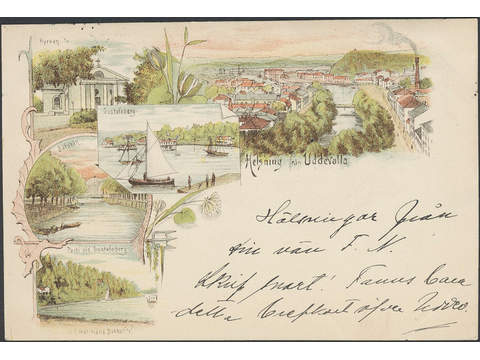 Kyrkan
Gustafsberg
Helsning från Uddevalla
Parti vid Gustafsberg
Hälsningar från
din vän F. N.
Skrif snart! Fanns bara
detta brefkort öfver Udde.